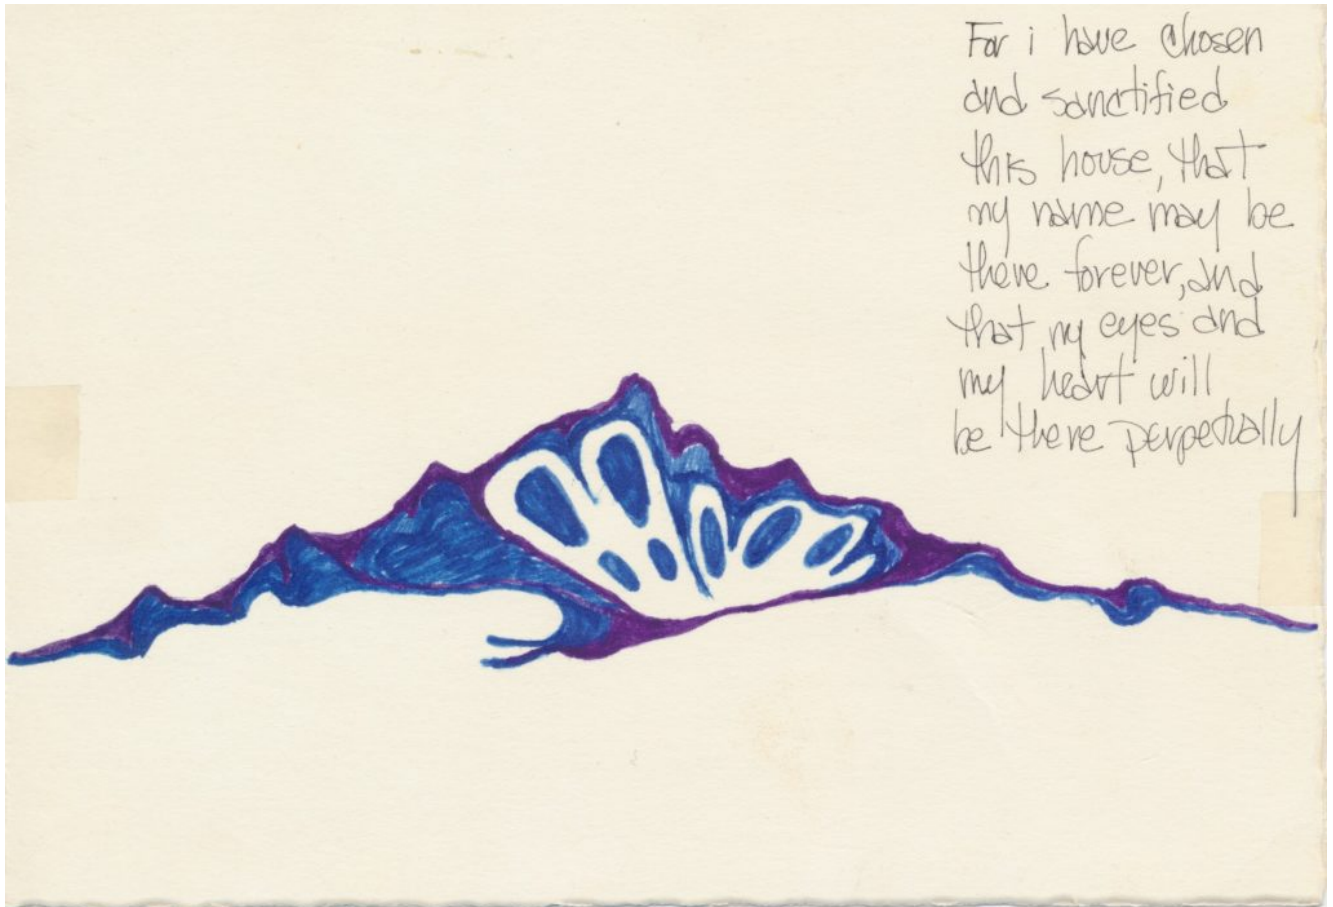 For i have chosen
and sanctified
this house, that
my name may be
there forever, and
that my eyes and
my heart will
be there perpetually